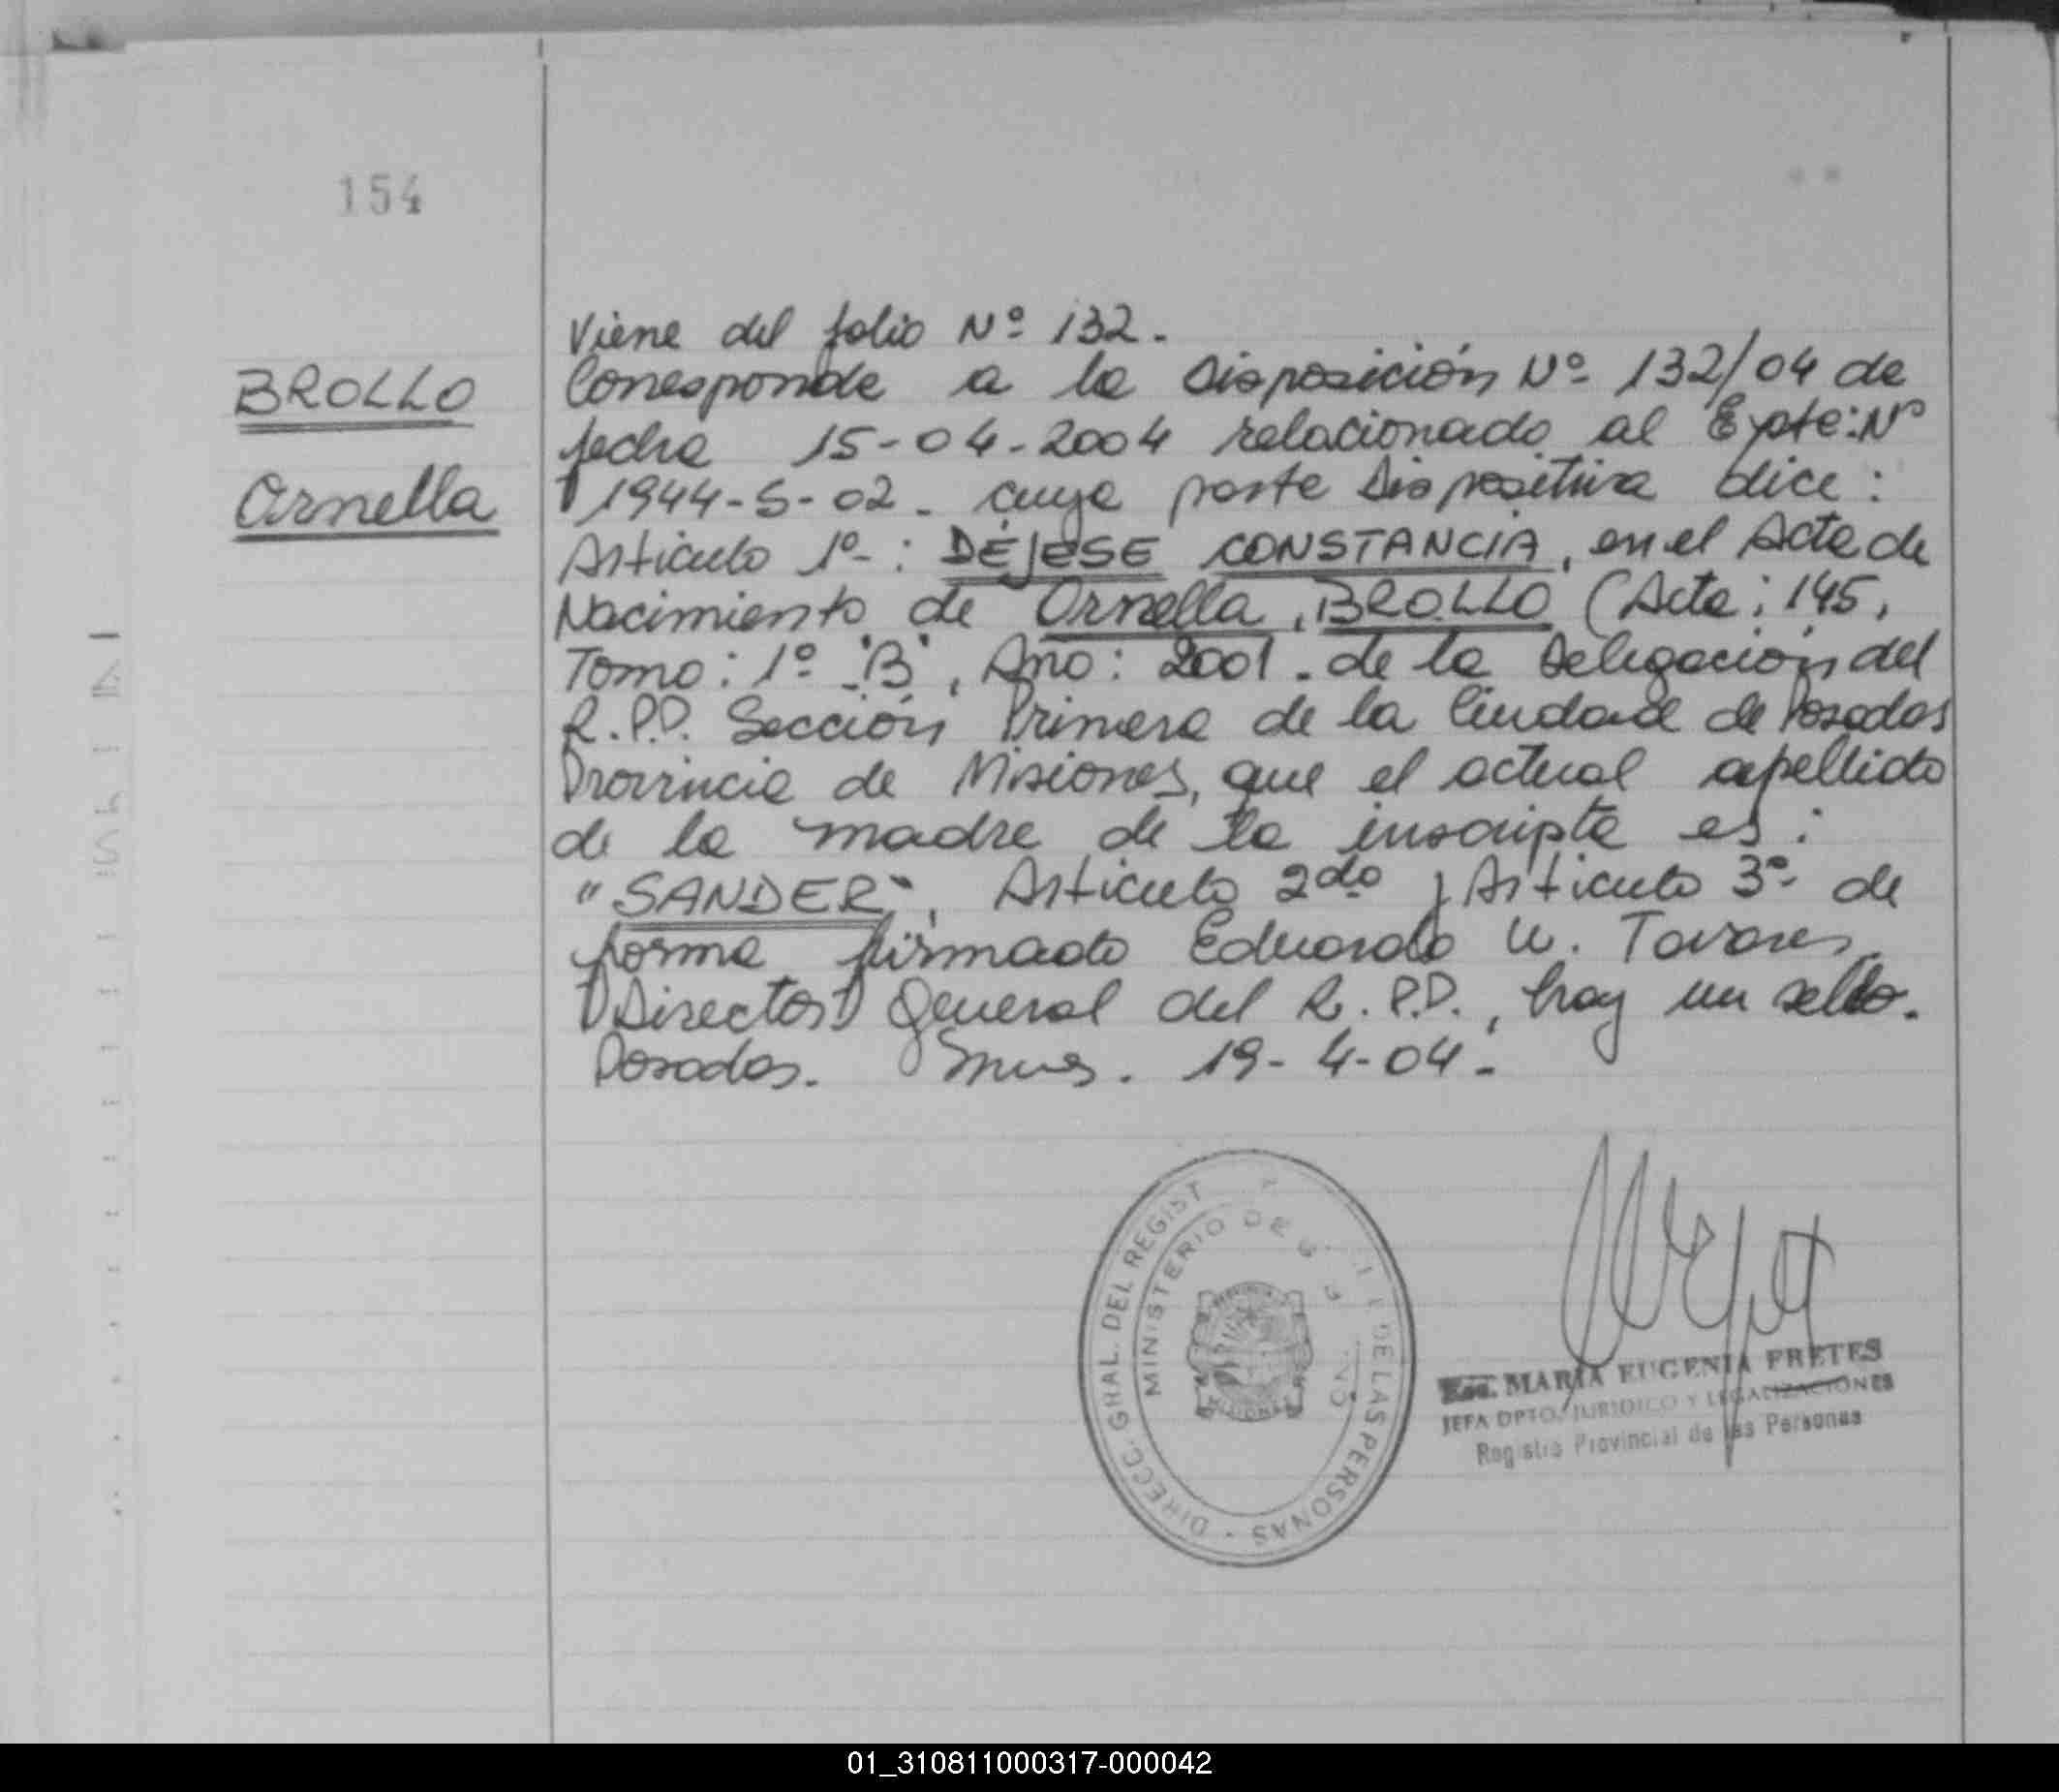 154
BROLLO
Ornella
Viene del folio Nº 132.
Corresponde a la Disposición Nº 132/04 de
fecha 15-04-2004 relacionado al Expte: Nº
1944-S-02. cuya parte Dispositiva dice:
Artículo 1º-: DÉJESE CONSTANCIA, en el Acta de
Nacimiento de Ornella, BROLLO (Acta: 145,
Tomo: 1º "B", Año: 2001. de la Delegación del
R.P.P. Sección Primera de la Ciudad de Posadas
Provincia de Misiones, que el actual apellido
de la madre de la inscripta es:
"SANDER", Artículo 2do y Artículo 3º de
forma firmado Eduardo W. Tavares
Director General del R.P.P., hay un sello.
Posadas. Mnes. 19-4-04-
DIRECC. GRAL. DEL REGIST DE LAS PERSONAS
MINISTERIO DE
MARIA EUGENIA FRETES
JEFA DPTO. JURIDICO Y LEGALIZACIONES
Registro Provincial de las Personas
01_310811000317-000042